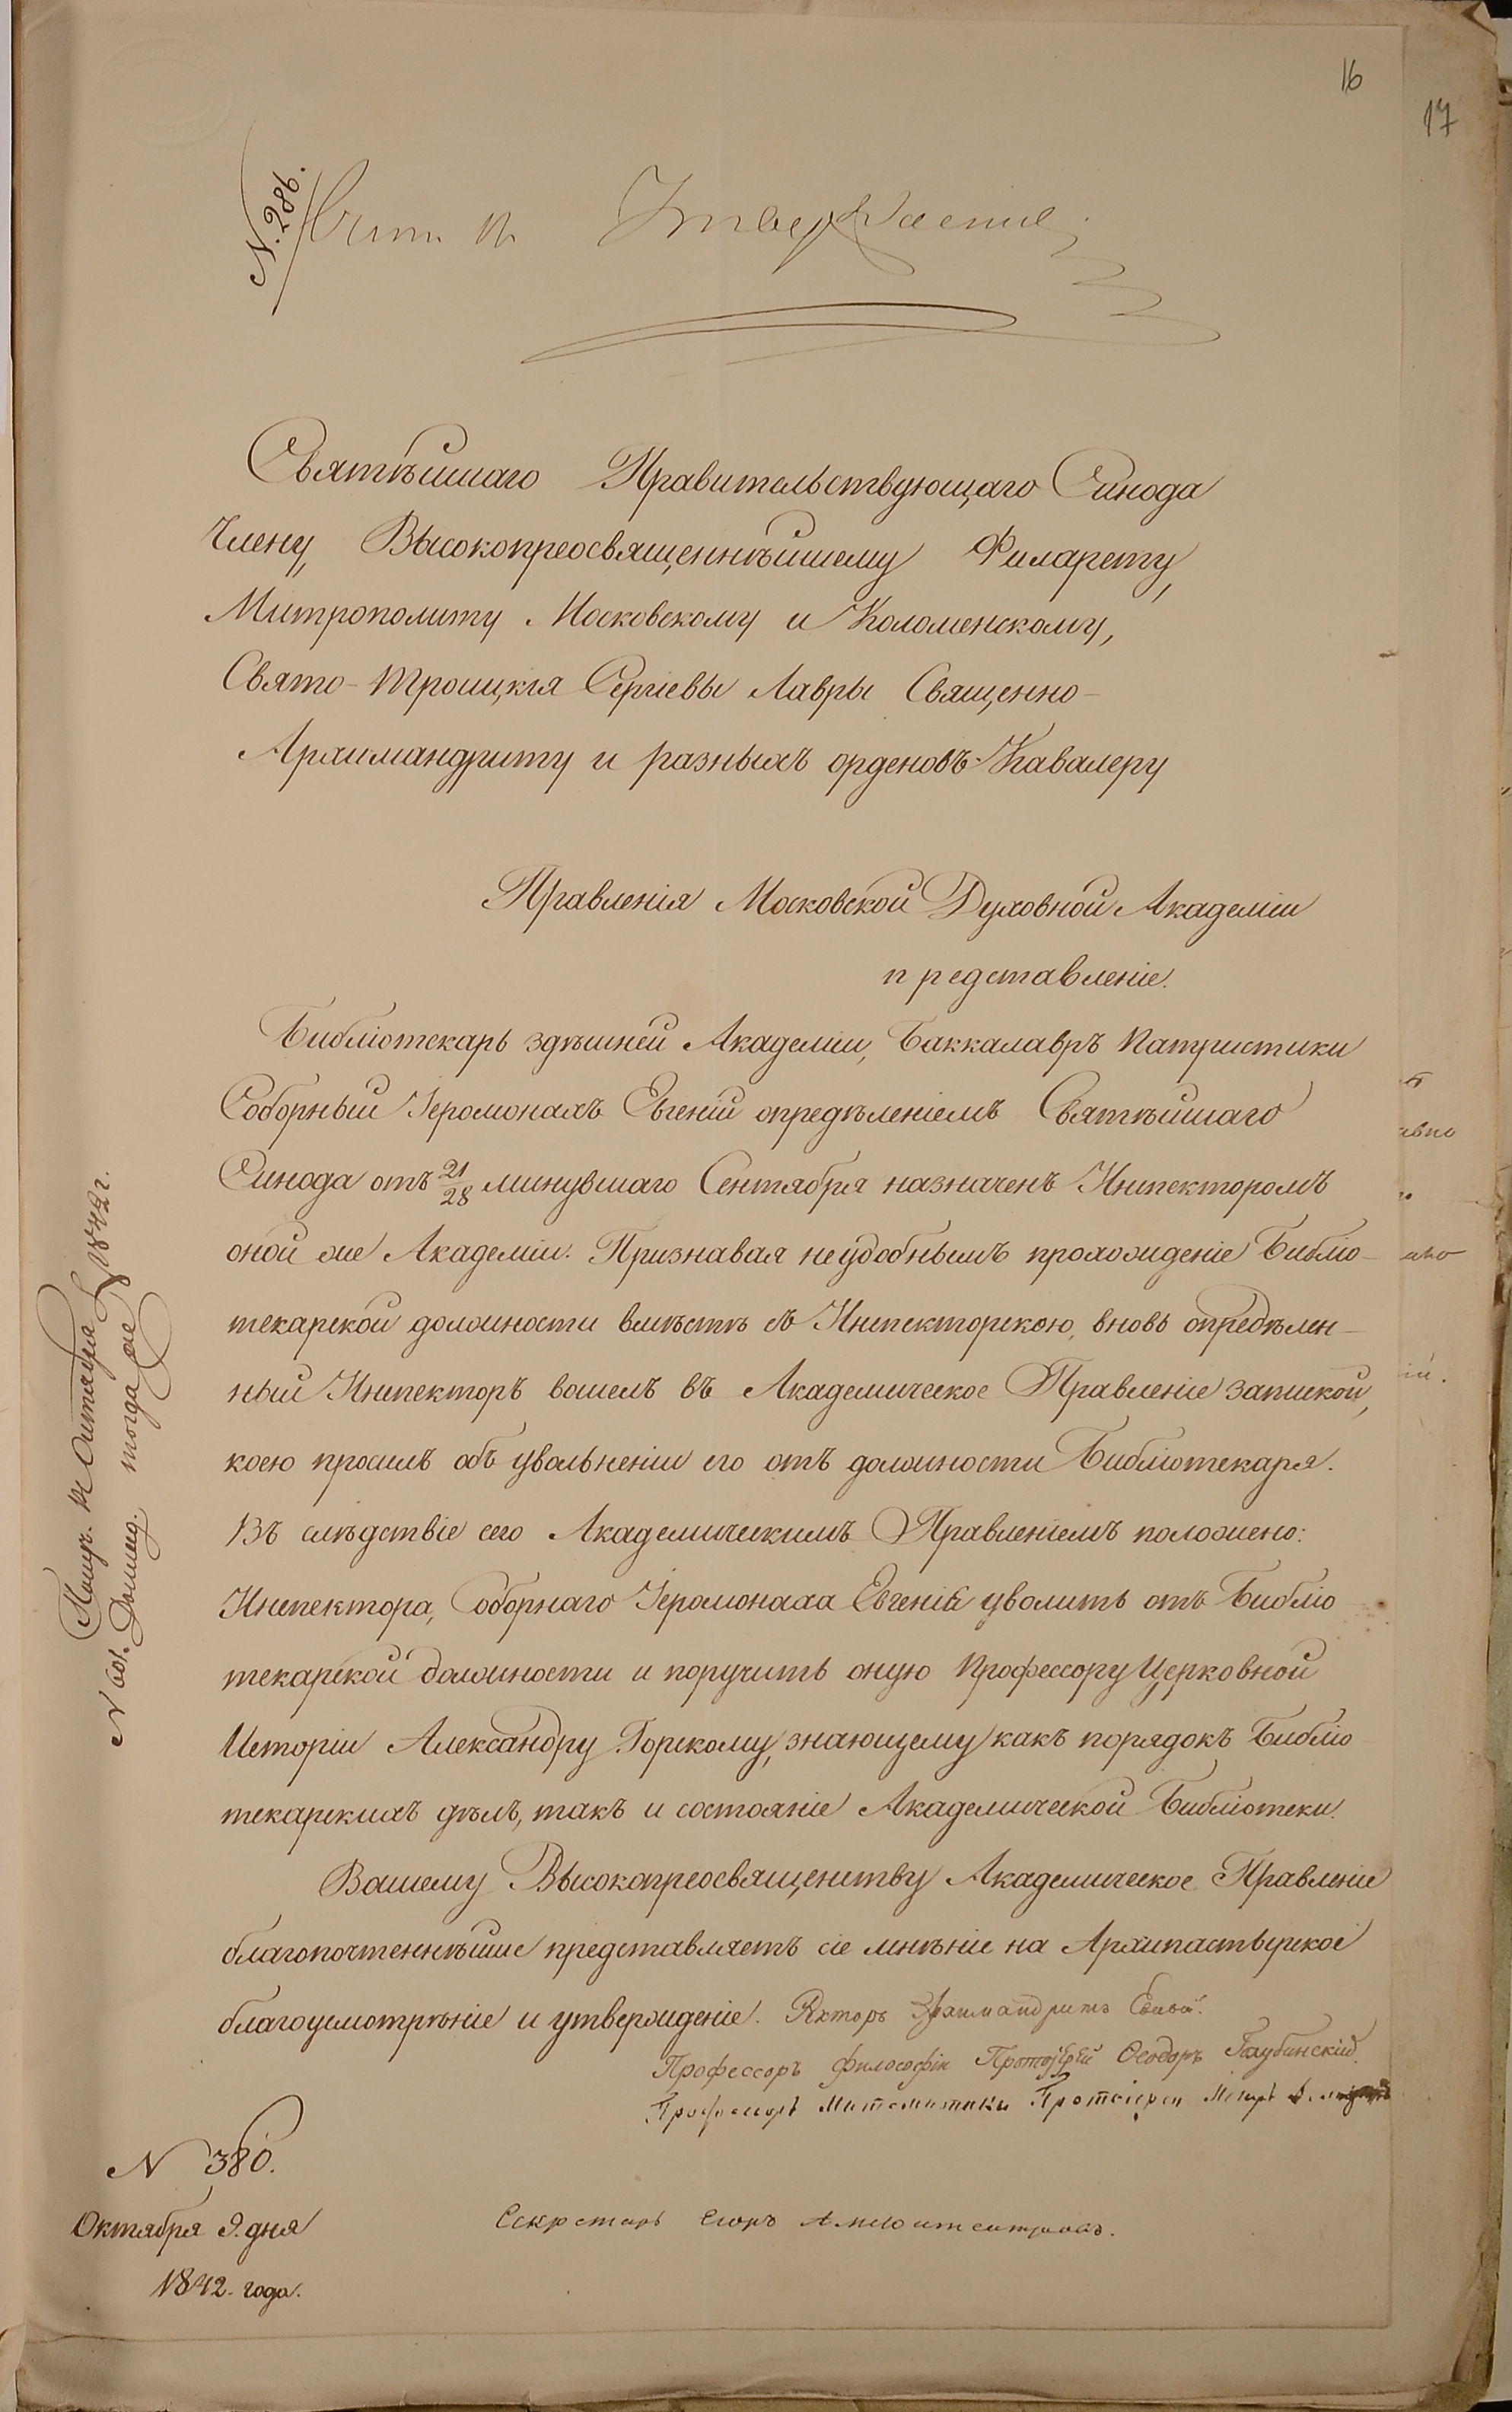 16
17
N. 286.
Утверждается
Святѣйшаго Правительствующаго Синода
Члену, Высокопреосвященнѣйшему Филарету,
Митрополиту Московскому и Коломенскому,
Свято-Троицкія Сергіевы Лавры Священно-
Архимандриту и разныхъ орденовъ Кавалеру
Правленія Московской Духовной Академіи
представленіе.
Библіотекарь здѣшней Академіи, Баккалавръ Патристики
Соборный Іеромонахъ Евгеній опредѣленіемъ Святѣйшаго
Синода отъ 21/28 минувшаго Сентября назначенъ Инспекторомъ
оной же Академіи. Признавая неудобнымъ прохожденіе Библіо-
текарской должности вмѣстѣ съ Инспекторскою, вновь опредѣлен-
ный Инспекторъ вошелъ въ Академическое Правленіе запиской,
коею просилъ объ увольненіи его отъ должности Библіотекаря.
Въ слѣдствіе сего Академическимъ Правленіемъ положено:
Инспектора, Соборнаго Іеромонаха Евгенія уволить отъ Библіо
текарской должности и поручить оную Профессору Церковной
Исторіи Александру Горскому, знающему какъ порядокъ Библіо
текарскихъ дѣлъ, такъ и состояніе Академической Библіотеки.
Вашему Высокопреосвященству Академическое Правленіе
благопочтеннѣйше представляетъ сіе мнѣніе на Архипастырское
благоусмотрѣніе и утвержденіе. Ректоръ Архимандритъ
Профессоръ Философіи Протоіерей Ѳеодоръ Голубинскій.
Профессоръ Математики Протоіерей Петръ
N 380.
Октября 9. дня
1842. года.
Секретарь Егоръ Амфитеатровъ.
Октября 1842 г.
тогда же